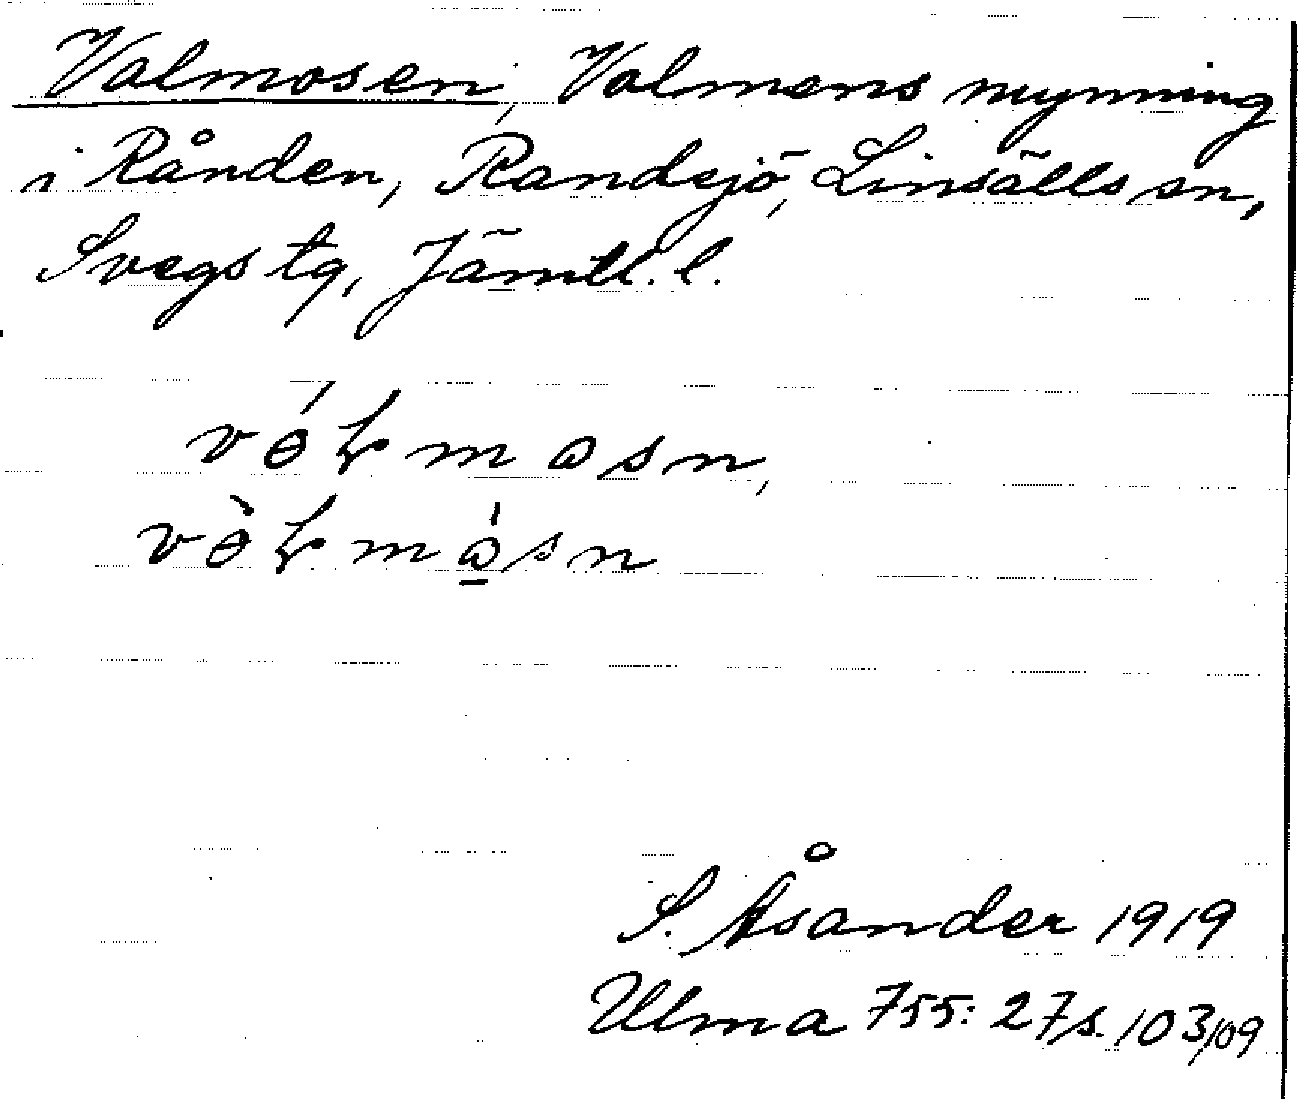 Valmosen, Valmens mynning
i Rånden, Randsjö, Linsälls sn,
Svegs tg, Jämtl. l.
vɵ́ɽmɑsn,
vɵ̀ɽmɑ̠́sn
S. Åsander 1919
Ulma 755: 27 s. 103, 109